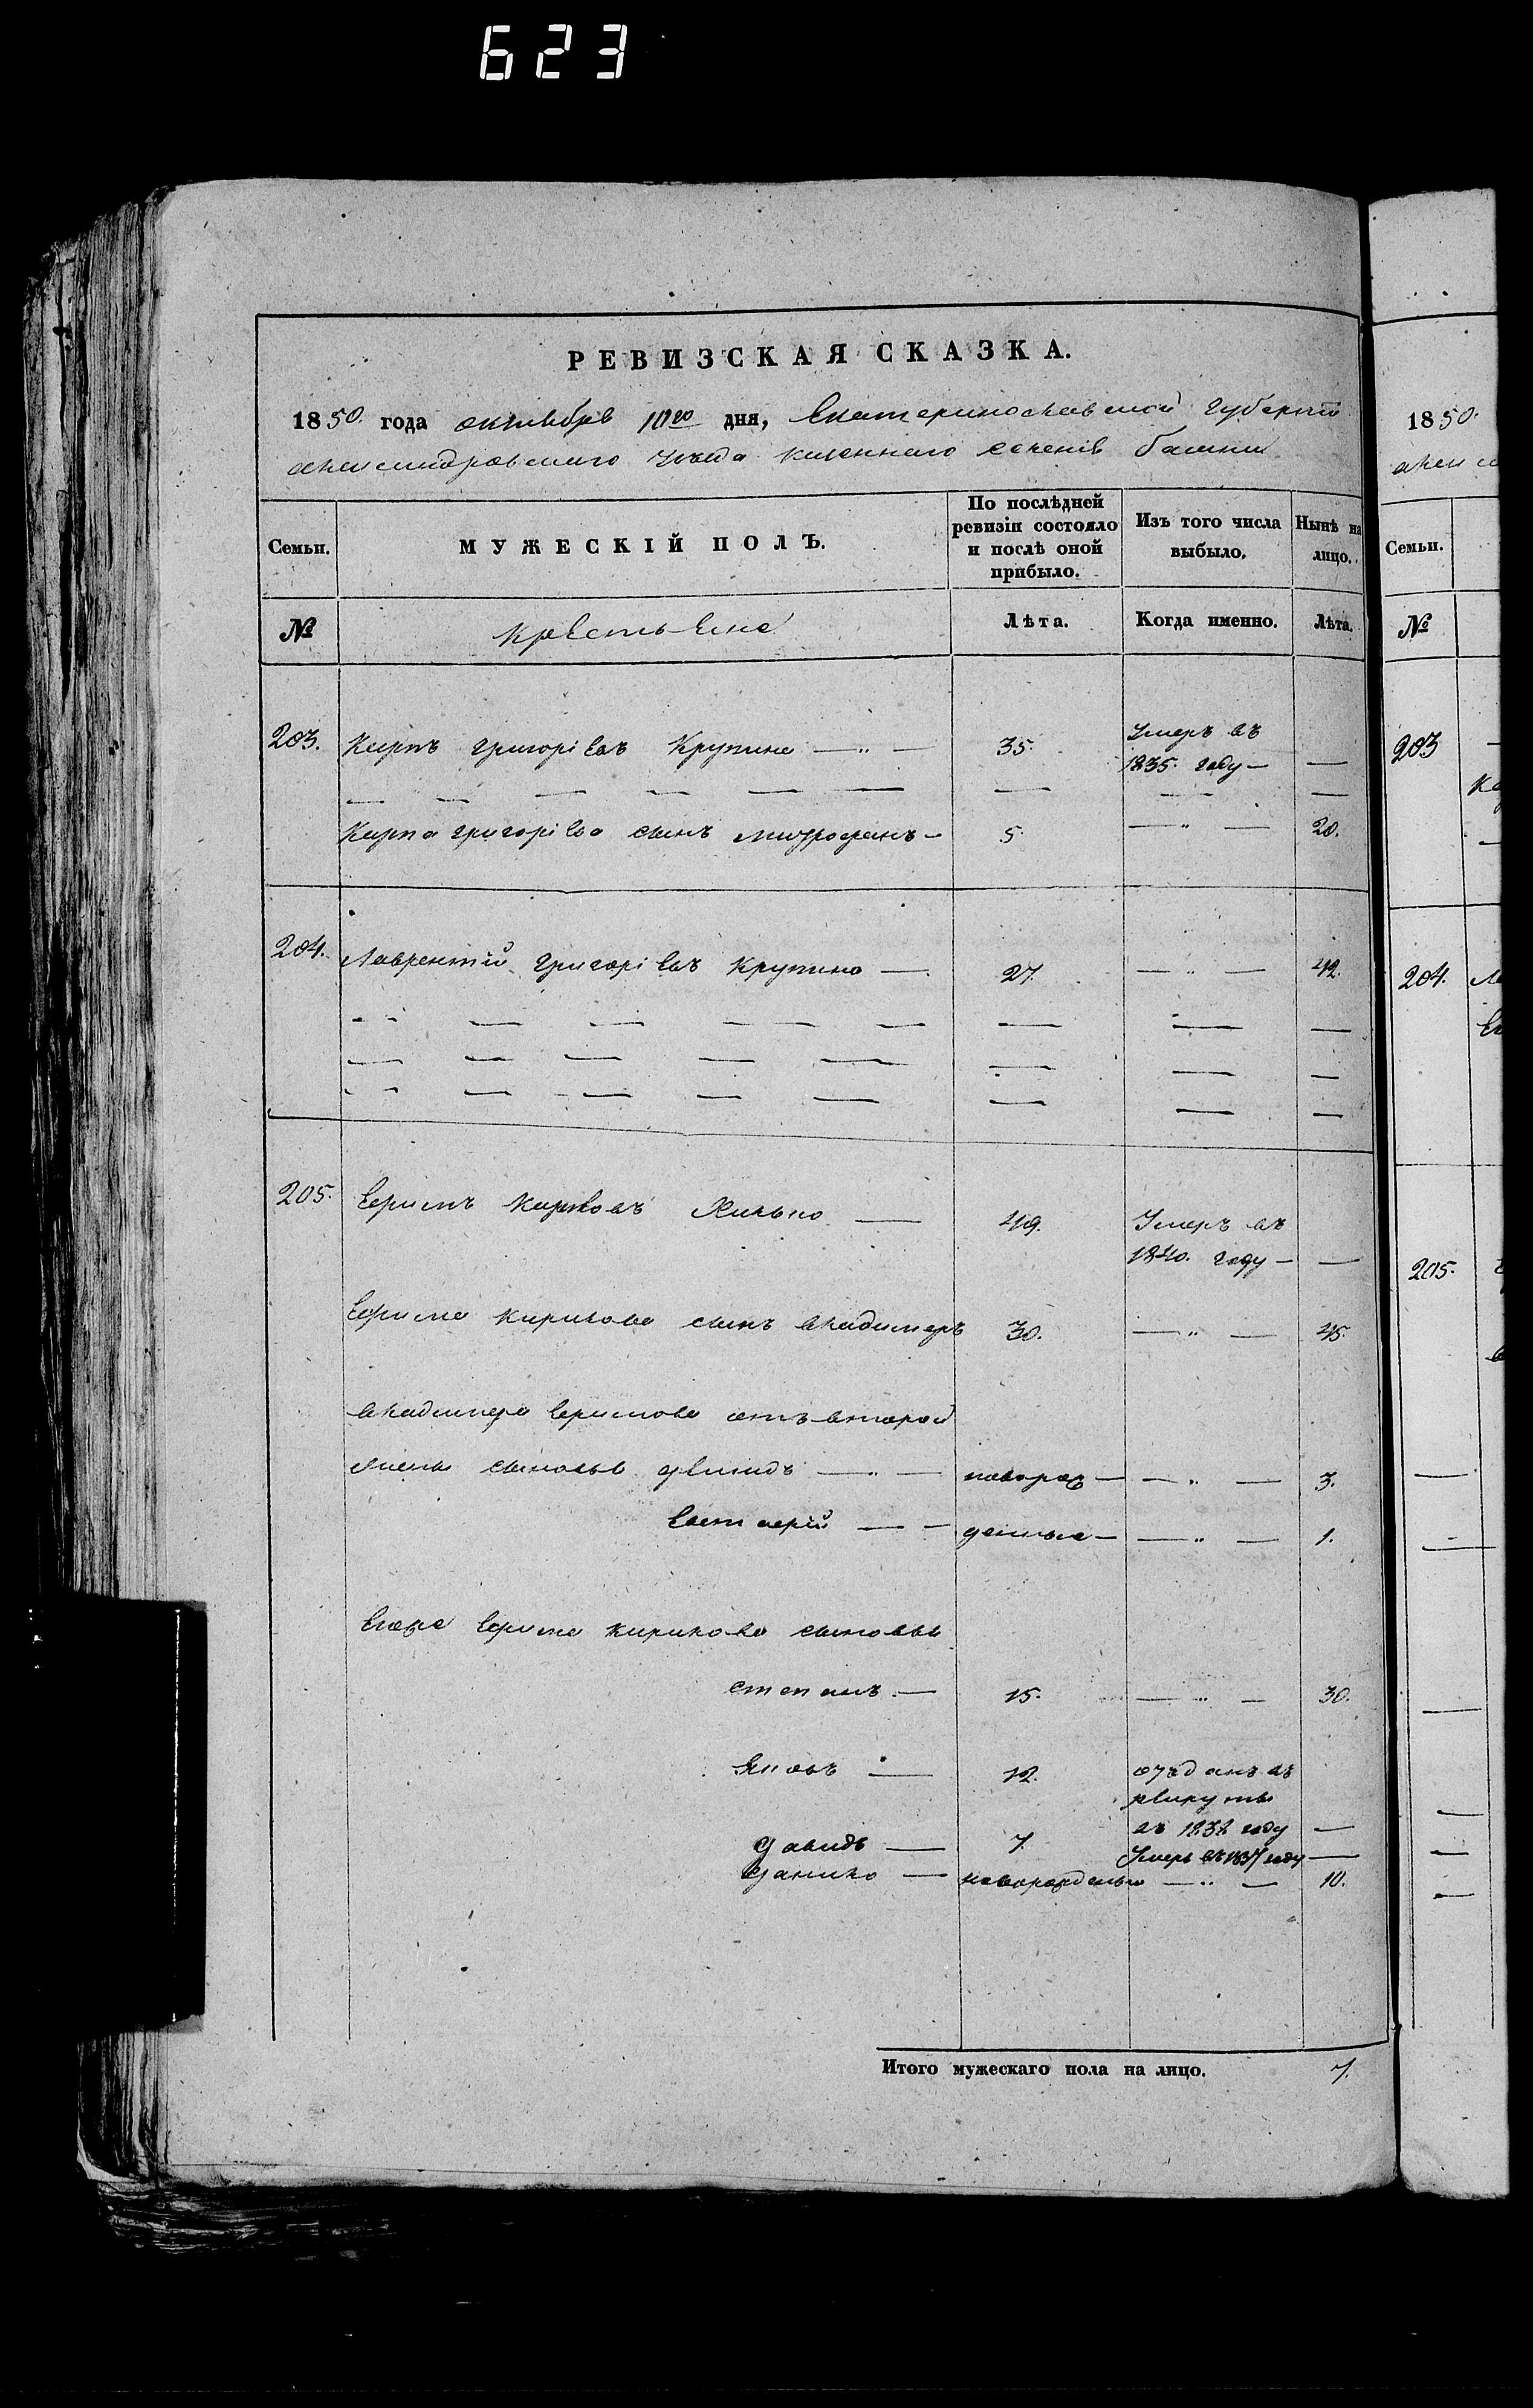 623
РЕВИЗСКАЯ СКАЗКА.
1850. года октября 10го дня, Екатеринославской губерніи
александровскаго уѣзда казеннаго селенія балки
Семьи.
МУЖЕСКІЙ ПОЛЪ.
По послѣдней ревизіи состояло и послѣ оной прибыло.
Изъ того числа выбыло.
Нынѣ на лицо.
№
крестьяне
Лѣта.
Когда именно.
Лѣта.
203. Карпъ григоріевъ Крупина — 35. Умеръ въ
1835. году — —
Карпа григоріева сынъ митрофанъ — 5. — " — 20.
204. Лаврентій григоріевъ Крупина — 27. — " — 42.
205. Ефимъ Кириковъ — 49. Умеръ въ
1840. году — —
Ефима кирикова сынъ владимеръ 30. — " — 45.
владимера ефимова отъ второй
жены сыновья — " — новорож— — " — 3.
— — денные — — " — 1.
Ефима кирикова сыновья
степанъ. — 15. — " — 30.
Яковъ — 12. отданъ въ
рекруты
въ году —
давидъ — 7. Умеръ въ 1837 году —
данило — новорожденый — " — 10.
Итого мужескаго пола на лицо. 7.
1850.
Семьи.
№
203
204.
205.